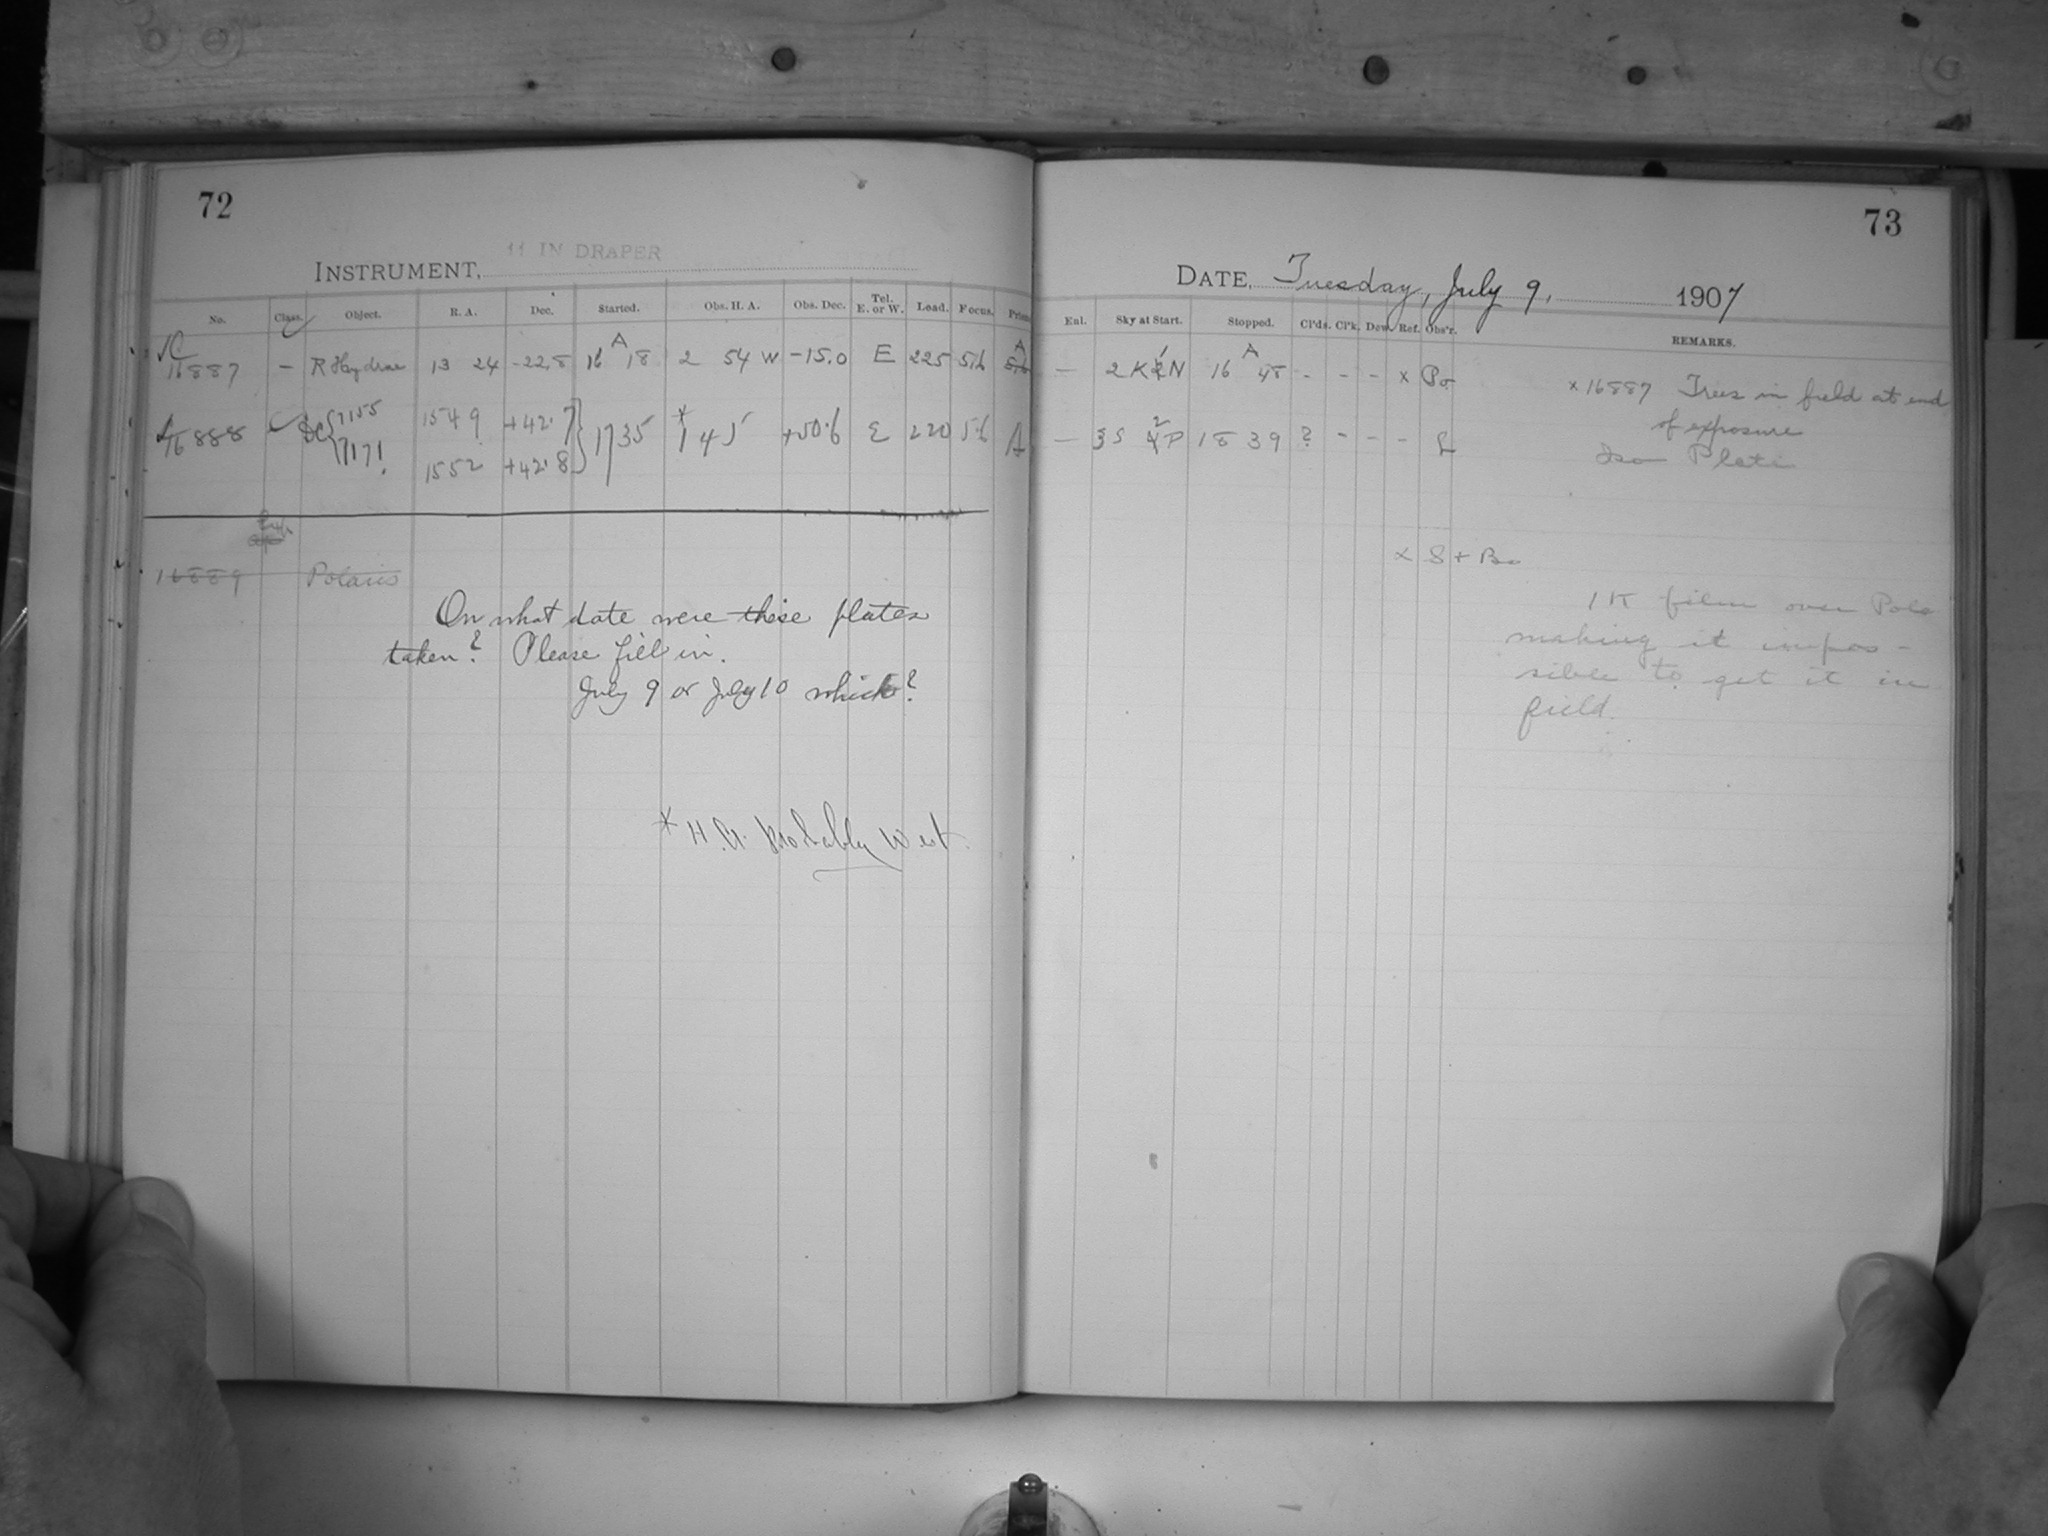 72
11 IN DRAPER
INSTRUMENT,
No. Class. Object. R. A. Dec. Started. Obs. H. A. Obs. Dec. Tel. E. or W. Load. Focus.
C A A
16887 – R Hydrae 13 24 -22.8 16 18 2 54 W -15.0 E 225 5.6
2155 1549 +42.7
16888 17 35 * 1 45 +50.6 E 220 5.6 A
7171 1552 +42.8
16889 Polaris
On what date were these plates
taken? Please fill in.
July 9 or July 10 which?
* H.A. probably West
73
DATE, Tuesday, July 9, 1907
Enl. Sky at Start. Stopped. Cl'ds. Cl'k. Dew. Ref. Obs'r. REMARKS.
— 2 K N 16 A 48 - - - x Po x 16887 Trees in field at end
of exposure
— 3 S P 18 39 ? - - - Iso Plate
x S + Bo
1 K film over Pole
making it impos-
sible to get it in
field.